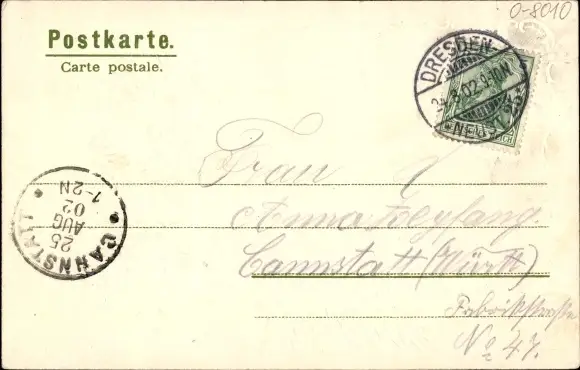 0-8010
Postkarte.
Carte postale.
DRESDEN
24.8.02.9-10N.
NEUST.
CANNSTATT
25
AUG
02
1-2N
Frau
Anna
Cannstatt (Württ)
Fabrikstrasse
No 47.